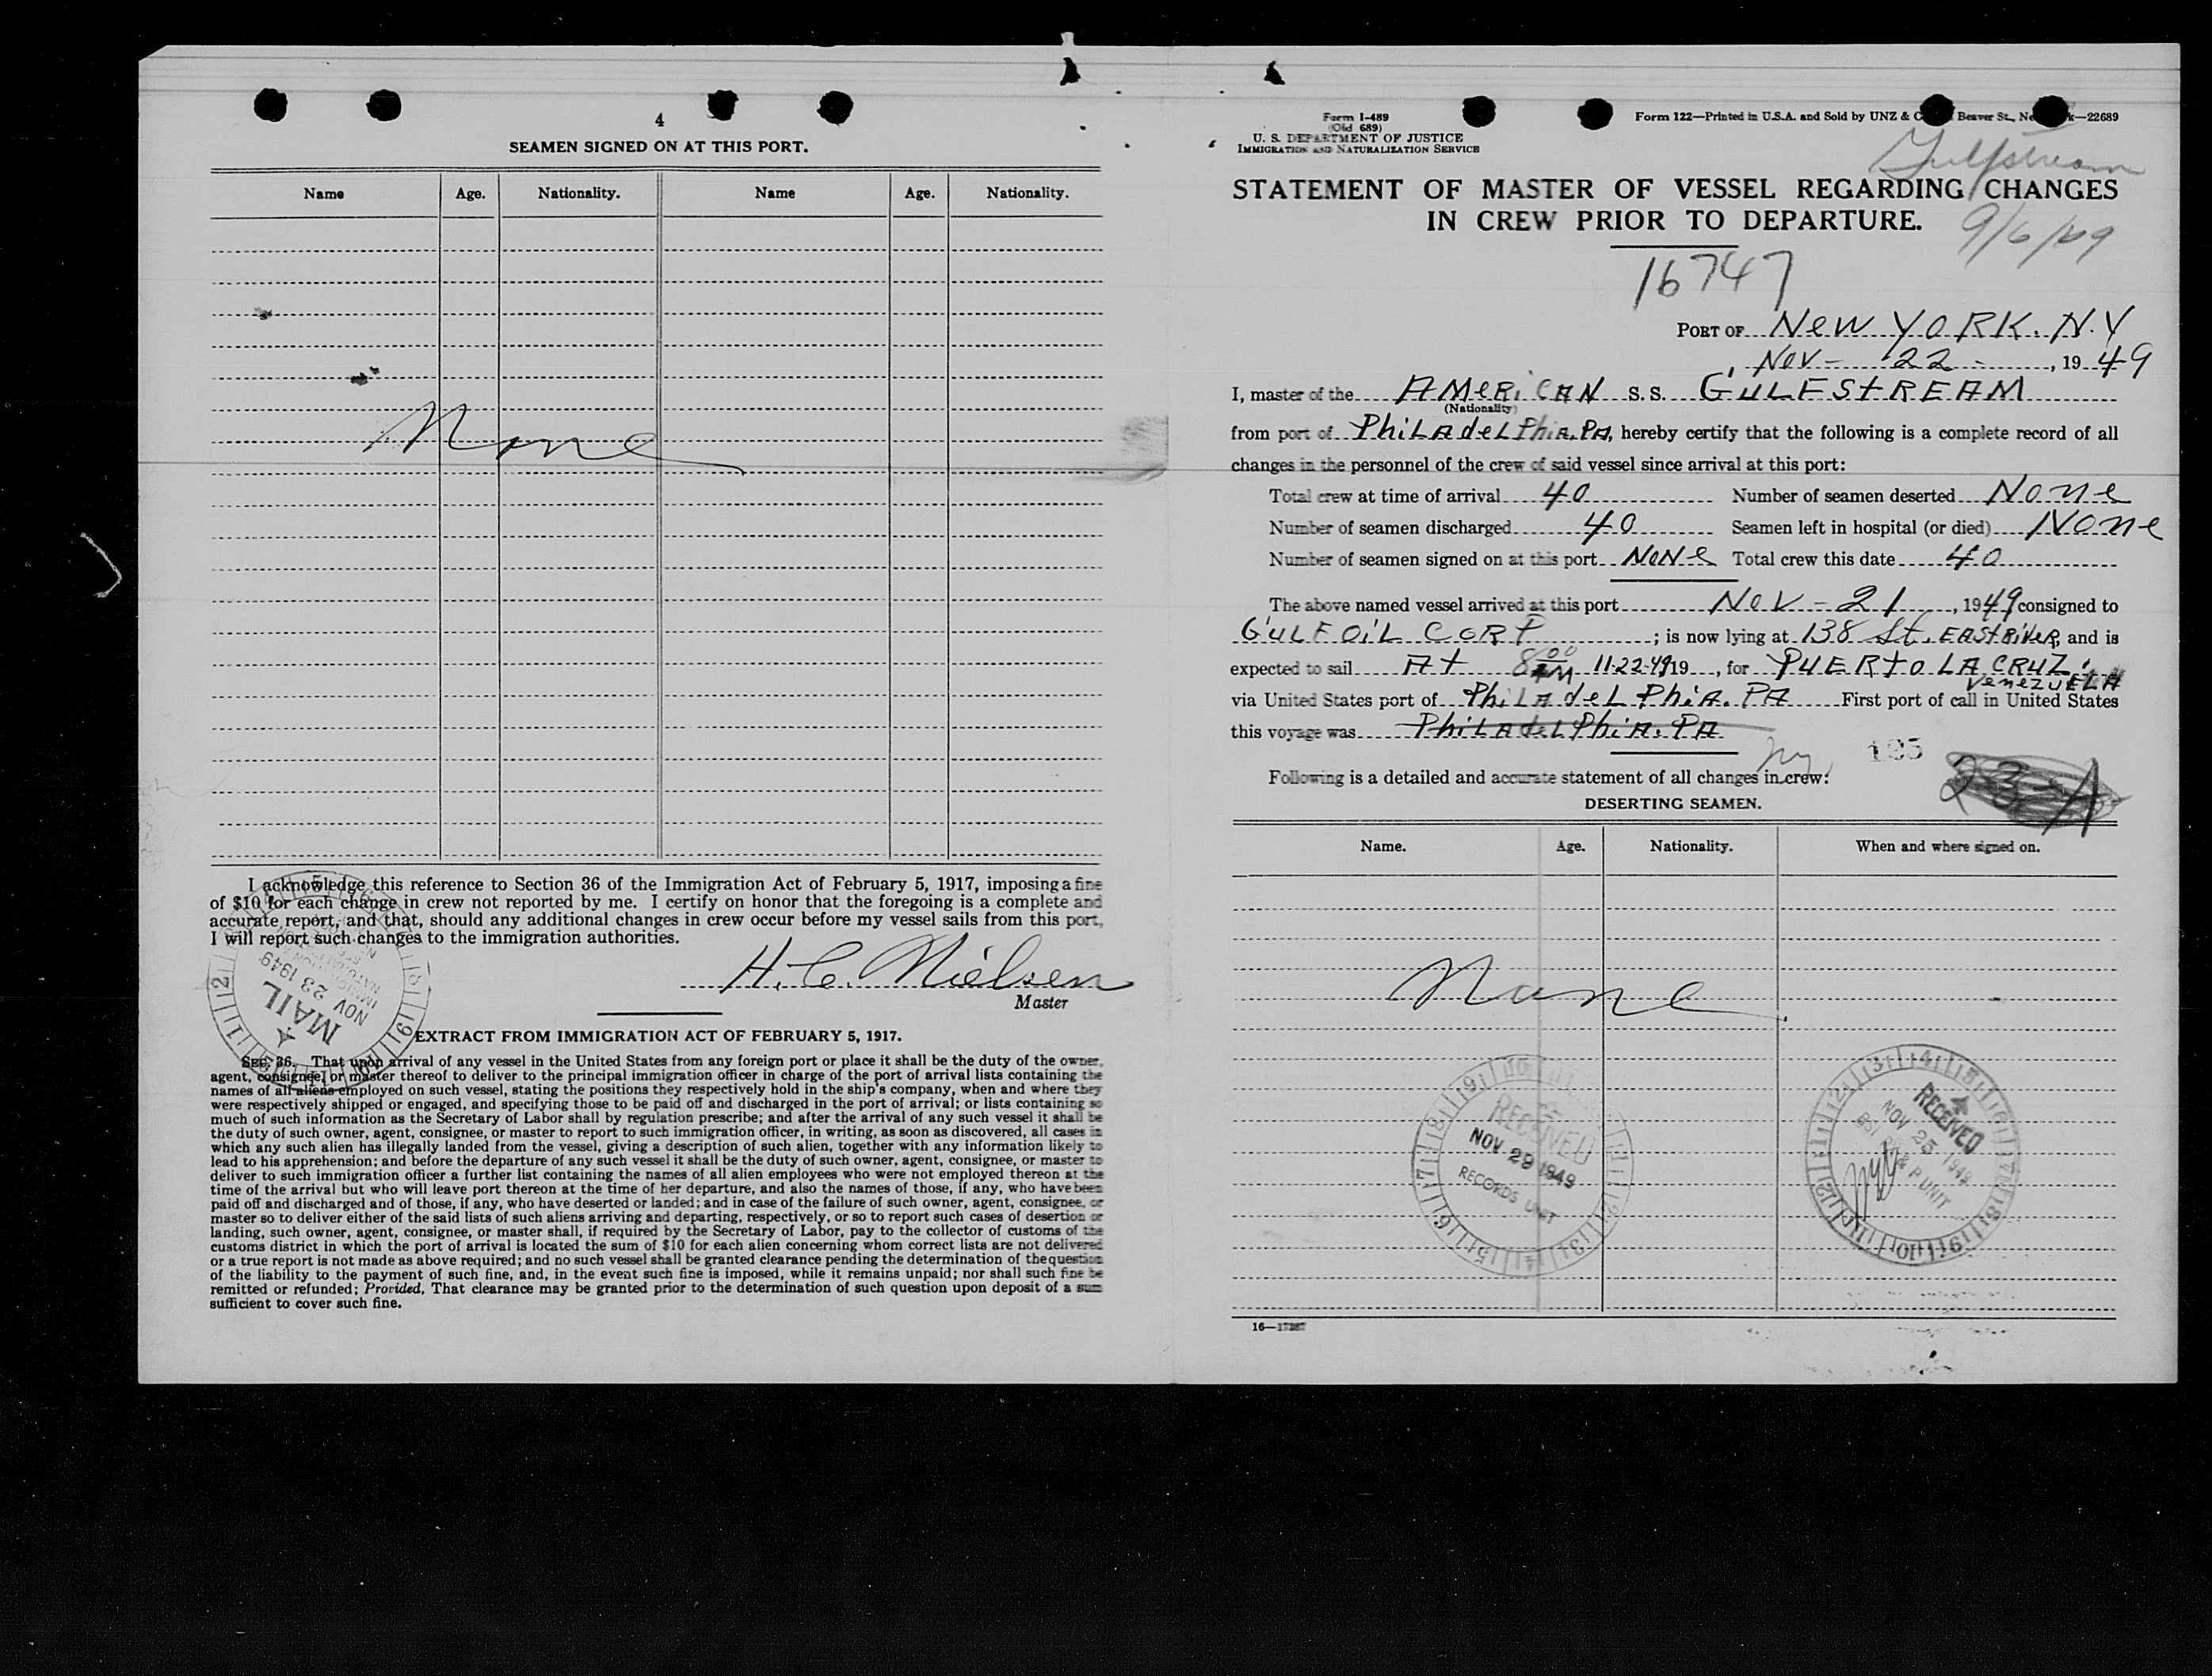 4
SEAMEN SIGNED ON AT THIS PORT.
Name Age. Nationality. Name Age. Nationality.
None
I acknowledge this reference to Section 36 of the Immigration Act of February 5, 1917, imposing a fine
of $10 for each change in crew not reported by me. I certify on honor that the foregoing is a complete and
accurate report, and that, should any additional changes in crew occur before my vessel sails from this port,
I will report such changes to the immigration authorities.
H. C. Nielsen
Master
MAIL
NOV 23 1949
EXTRACT FROM IMMIGRATION ACT OF FEBRUARY 5, 1917.
SEC. 36. That upon arrival of any vessel in the United States from any foreign port or place it shall be the duty of the owner,
agent, consignee, or master thereof to deliver to the principal immigration officer in charge of the port of arrival lists containing the
names of all aliens employed on such vessel, stating the positions they respectively hold in the ship's company, when and where they
were respectively shipped or engaged, and specifying those to be paid off and discharged in the port of arrival; or lists containing so
much of such information as the Secretary of Labor shall by regulation prescribe; and after the arrival of any such vessel it shall be
the duty of such owner, agent, consignee, or master to report to such immigration officer, in writing, as soon as discovered, all cases in
which any such alien has illegally landed from the vessel, giving a description of such alien, together with any information likely to
lead to his apprehension; and before the departure of any such vessel it shall be the duty of such owner, agent, consignee, or master to
deliver to such immigration officer a further list containing the names of all alien employees who were not employed thereon at the
time of the arrival but who will leave port thereon at the time of her departure, and also the names of those, if any, who have been
paid off and discharged and of those, if any, who have deserted or landed; and in case of the failure of such owner, agent, consignee, or
master so to deliver either of the said lists of such aliens arriving and departing, respectively, or so to report such cases of desertion or
landing, such owner, agent, consignee, or master shall, if required by the Secretary of Labor, pay to the collector of customs of the
customs district in which the port of arrival is located the sum of $10 for each alien concerning whom correct lists are not delivered
or a true report is not made as above required; and no such vessel shall be granted clearance pending the determination of the question
of the liability to the payment of such fine, and, in the event such fine is imposed, while it remains unpaid; nor shall such fine be
remitted or refunded; Provided, That clearance may be granted prior to the determination of such question upon deposit of a sum
sufficient to cover such fine.
Form I-489
(Old 689)
U. S. DEPARTMENT OF JUSTICE
IMMIGRATION AND NATURALIZATION SERVICE
Form 122—Printed in U.S.A. and Sold by UNZ & C Beaver St., Ne k—22689
Gulfstream
STATEMENT OF MASTER OF VESSEL REGARDING CHANGES
IN CREW PRIOR TO DEPARTURE.
9/6/49
16747
PORT OF NEW YORK. N.Y
Nov - 22 -, 1949
I, master of the AMERICAN S. S. GULFSTREAM
(Nationality)
from port of PhiLAdeLPhiA. PA, hereby certify that the following is a complete record of all
changes in the personnel of the crew of said vessel since arrival at this port:
Total crew at time of arrival 40 Number of seamen deserted None
Number of seamen discharged 40 Seamen left in hospital (or died) None
Number of seamen signed on at this port NONE Total crew this date 40
The above named vessel arrived at this port Nov - 21, 1949 consigned to
GULF OIL CORP; is now lying at 138 St. EAST RIVER, and is
expected to sail At 8 00 AM 11-22-49 19, for PUERTO LA CRUZ.
VenezuELA
via United States port of PhiLAdeLPhiA. PA First port of call in United States
this voyage was PhiLAdeLPhiA. PA
ny 125
Following is a detailed and accurate statement of all changes in crew:
DESERTING SEAMEN.
Name. Age. Nationality. When and where signed on.
None
RECEIVED
NOV 29 1949
RECORDS UNIT
RECEIVED
NOV 25 1949
P UNIT